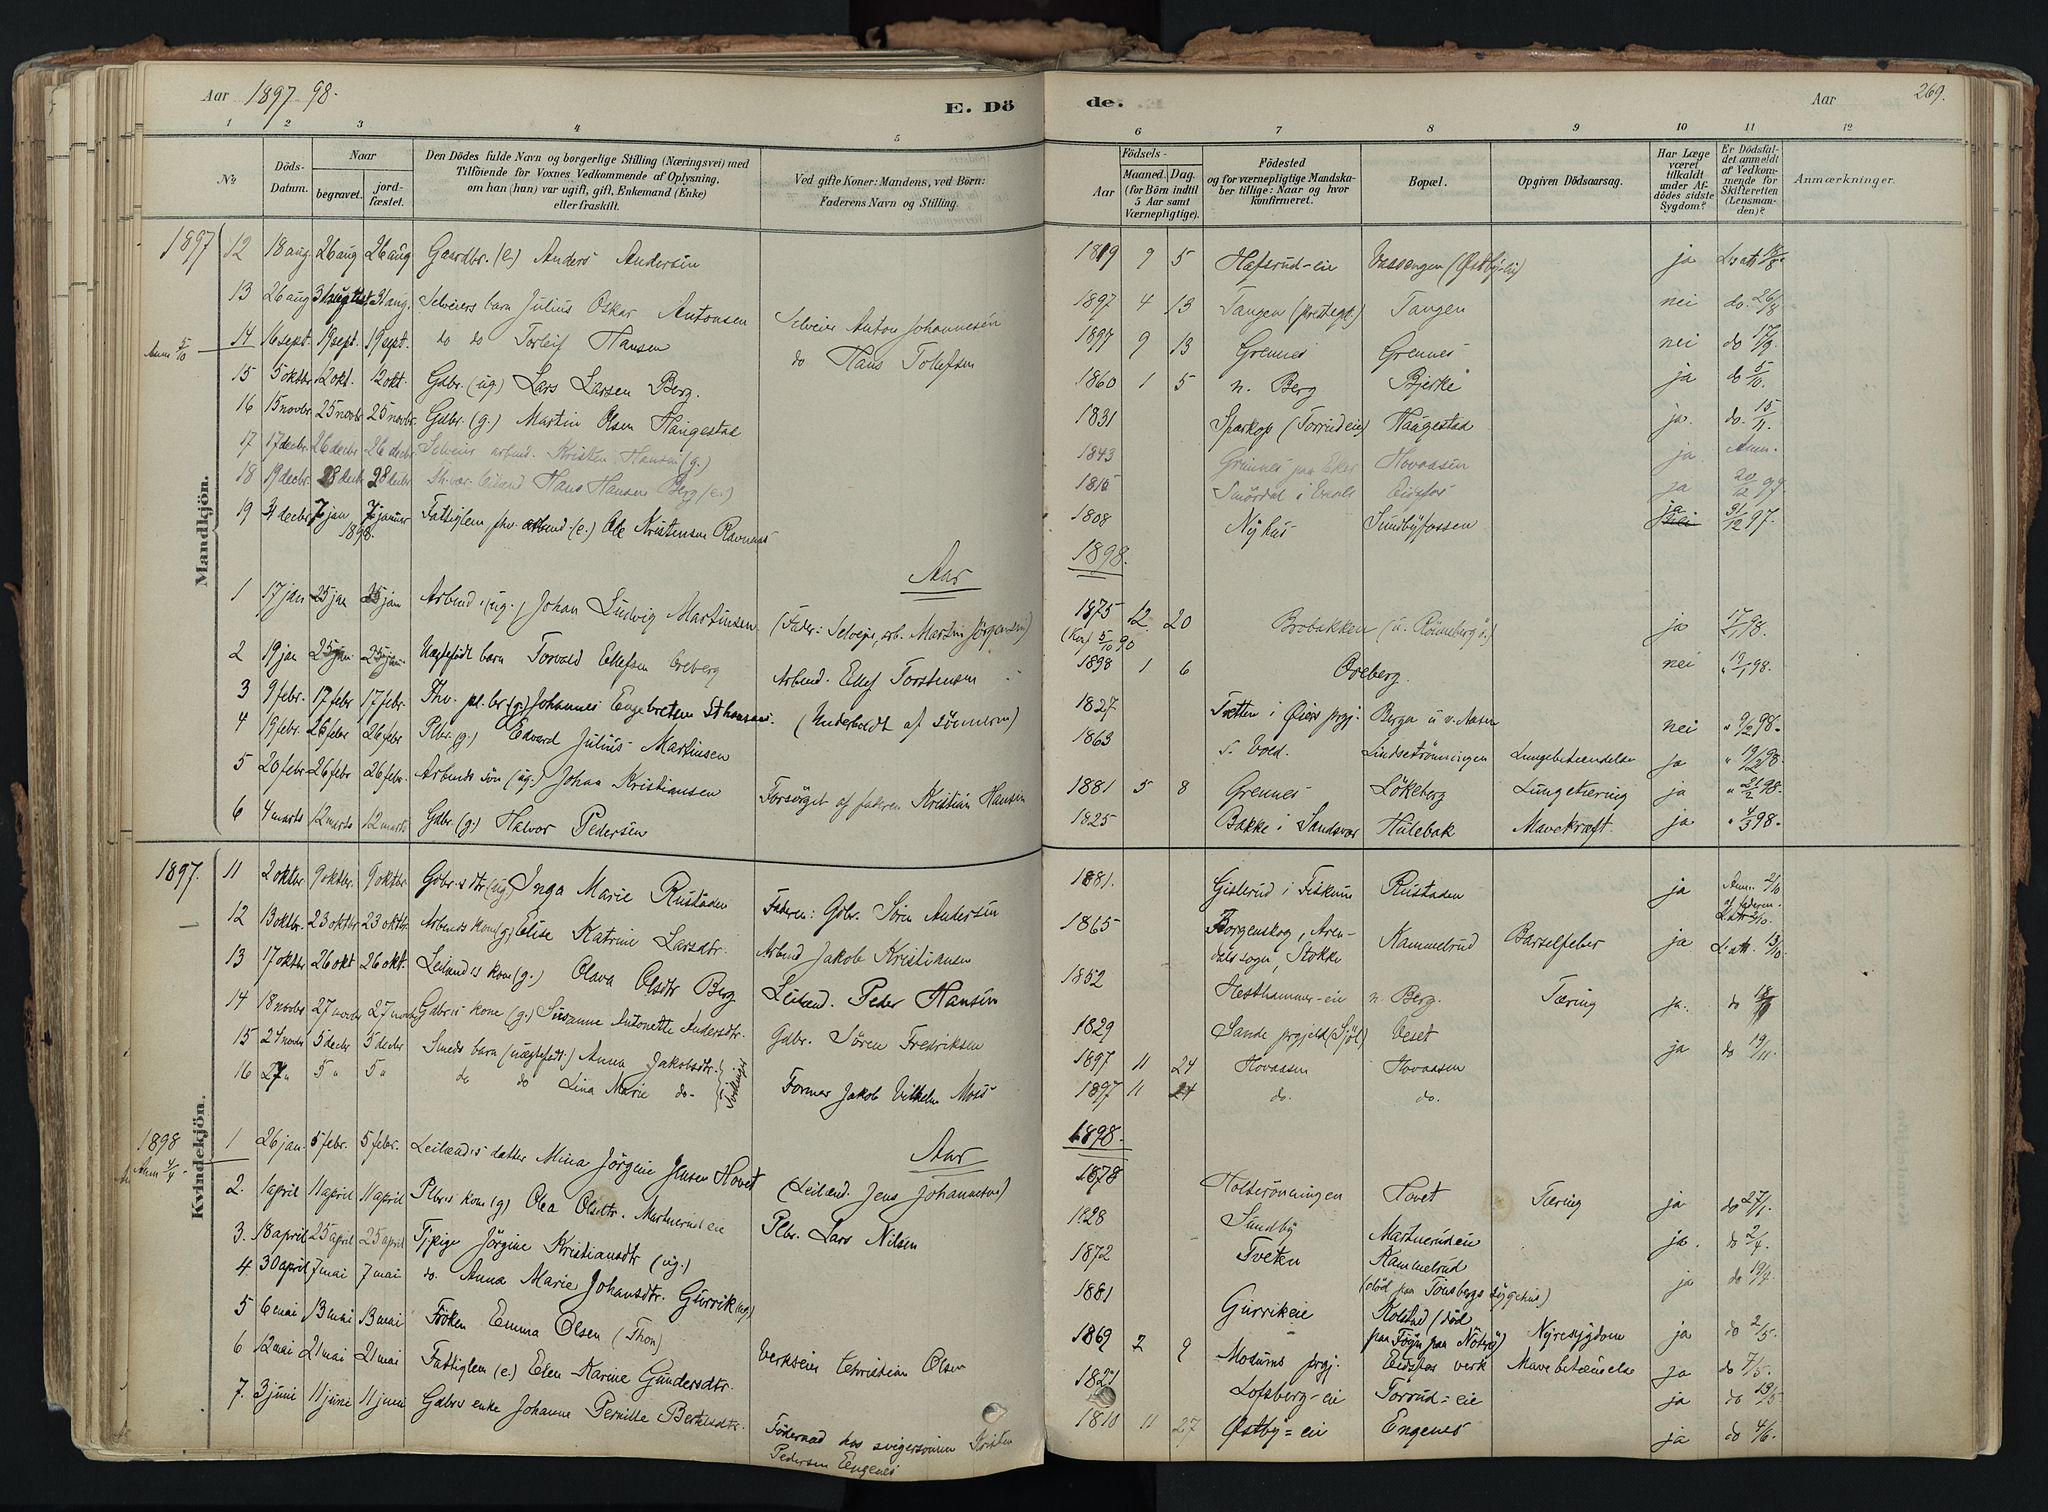 Aar 1897-98.
E. Döde.
Aar 269.
1 2 3 4 5 6 7 8 9 10 11 12
No
Döds-Datum.
Naar
begravet.
jordfæstet.
Den Dödes fulde Navn og borgerlige Stilling (Næringsvei) med
Tilföiende for Voxnes Vedkommende af Oplysning,
om han (hun) var ugift, gift, Enkemand (Enke)
eller fraskilt.
Ved gifte Koner: Mandens, ved Börn:
Faderens Navn og Stilling.
Födsels-
Aar
Maaned. Dag.
(for Börn indtil
5 Aar samt
Værnepligtige).
Födested
og for værnepligtige Mandskaber tillige: Naar og hvor
konfirmeret.
Bopæl.
Opgiven Dödsaarsag.
Har Læge
været
tilkaldt
under Afdödes sidste
Sygdom?
Er Dödsfaldet anmeldt
af Vedkommende for
Skifteretten
(Lensmanden)?
Anmærkninger.
Mandkjön.
1897 12 18 aug 26 aug 26 aug Gaardbr. (e) Anders Andersen 1819 9 5 Hafsrud-eie ja
13 26 aug 31 aug. Selveiers barn Julius Oskar Antonsen Selveier Anton Johannesen 1897 4 13 Tangen (prestegd.) Tangen nei do. 26/8
14 16 sept. 19 sept. 19 sept. do do Torleif Hansen do Hans Tollefsen 1897 9 13 Grennes Grennes nei do 17/9
Anm 5/10
15 5 oktbr 12 okt. 12 okt. Gdbr. (ug) Lars Larsen Berg. 1860 1 5 n. Berg Bjerke ja do 5/10.
16 15 novbr 25 novbr 25 novbr. Gdbr. (g.) Martin Olsen Haugestad 1831 Sparkop (Torrudeie) Haugestad ja. do. 15/11.
17 17 decbr. 26 decbr 26 decbr. Selveier arbeid. Kristen Hansen (g.) 1843 Grennes paa Eker Hovaasen ja Anm.
18 19 decbr. 28 decbr 28 decbr Hans Hansen Berg (e.) 1815 Eidsfos ja 20/12 97
19 31 decbr. 7 jan 7 januar 1898. Fattiglem fhv. arbeid. (e.) Ole Kristensen Ravnaas 1808 Nyhus Sundbyfossen ja 31/12 97.
Aar 1898.
1 17 jan 25 jan 25 jan Arbeid. (ug.) Johan Ludvig Martinsen (Fader: Selveier, arb. Martin Jörgensen) 1875 12 20 Brobakken (u. Rönneberg s.) ja 17/1 98.
(Kon) 5/10 90
2 19 jan 25 jan 25 jan. Uægtefödt barn Torvald Ellefsen Oreberg Arbeid. Ellef Torstensen 1898 1 6 Oreberg. nei 19/1 98.
3 9 febr. 17 febr 17 febr. Fhv. pl. br (g.) Johannes Engebretsen (Underholdt af sönnerne) 1827. Tretten i Öier prgj. Berga u v. Aasen nei " 9/2 98.
4 19 febr. 26 febr 26 febr Plbr. (g.) Edvard Julius Martinsen 1863 s. Vold. Lindseströnningen Lungebetændelse ja " 19/2 98.
5 20 febr. 26 febr 26 febr. Arbeids sön (ug.) Johan Kristiansen Forsörget af faderen Kristian Hansen 1881 5 8 Grennes Lökeberg Lungetæring ja " 21/2 98.
6 4 marts 12 marts 12 marts Gdbr. (g.) Halvor Pedersen 1825 Bakke i Sandsvær Hulebak Mavekræft. ja " 4/3 98.
Kvindekjön.
1897. 11 2 oktbr 9 oktbr. 9 oktbr. Gdbr.s dtr (ug) Inga Marie Rustaden Faderen: Gdbr. Sören Andersen 1881. Gislerud i Fiskum Rustaden ja Anm. 2/10 af faderen.
12 13 oktbr. 23 oktbr 23 oktbr. Arbeids kone (g.) Elise Katrine Larsdtr. Arbeid Jakob Kristiansen 1865 Borgenskog, Arendals sogn, Stokke Kammelrud Barselfeber ja L. att. 13/10.
13 17 oktbr 26 okt 26 okt. Leilænd.s kone (g.) Olava Olsdtr Berg Leilænd. Peder Hansen 1852 Hesthammer-eie n. Berg. Tæring ja. do 18/10
14 18 novbr 27 novbr 27 novbr Gdbr.s kone (g.) Susanne Antonette Andersdtr. Gdbr. Sören Fredriksen 1829 Sande prgjeld (Sjöl) Veset ja do 19/11.
15 24 novbr 5 decbr 5 decbr Smeds barn (uægtefödt.) Anna Jakobsdtr. 1897 11 24 Hovaasen Hovaasen
16 27 " 5 " 5 " do do Lina Marie do. Tvillinger Former Jakob Vilhelm Moss 1897 11 24 do. do.
Aar 1898.
1898 1 26 jan. 5 febr. 5 febr. Leilænd.s datter Mina Jörgine Jensen Hovet (Leilænd. Jens Johannesen) 1878 Holterönningen Hovet Tæring ja do 27/1.
Anm 4/4
2. 1 april 11 april 11 april Plbr.s kone (g) Olea Olsdtr. Martnerud eie Plbr. Lars Nilsen 1828 Sundby Martnerudeie ja. do 2/4.
3. 18 april 25 april 25 april Tjpige Jörgine Kristiansdtr (ug.) 1872 Tveten Kammelrud (död paa Tönsbergs sygehus) ja do 19/4.
4. 30 april 7 mai 7 mai do. Anna Marie Johansdtr. Gurrik (ug) 1881 Gurrikeie Kolstad (död paa Föyn paa Nötterö) Nyresygdom ja do 2/5.
5 6 mai 13 mai 13 mai Fröken Emma Olsen (Thon) Verkseier Christian Olsen 1869 2 9 Modums prgj. Eidsfos verk Mavebetændelse ja do 7/5.
6 12 mai 21 mai 21 mai Fattiglem (e.) Elen Karine Gundersdtr. 1821 Lofsberg-eie Torrud-eie ja do 13/5
7. 3 juni 11 juni 11 juni Gdbrs enke Johanne Pernille Bertelsdtr. Föderaad hos svigersönnen Kristen Pedersen Engenes 1810 11 27 Østby-eie Engenes ja do 4/6.